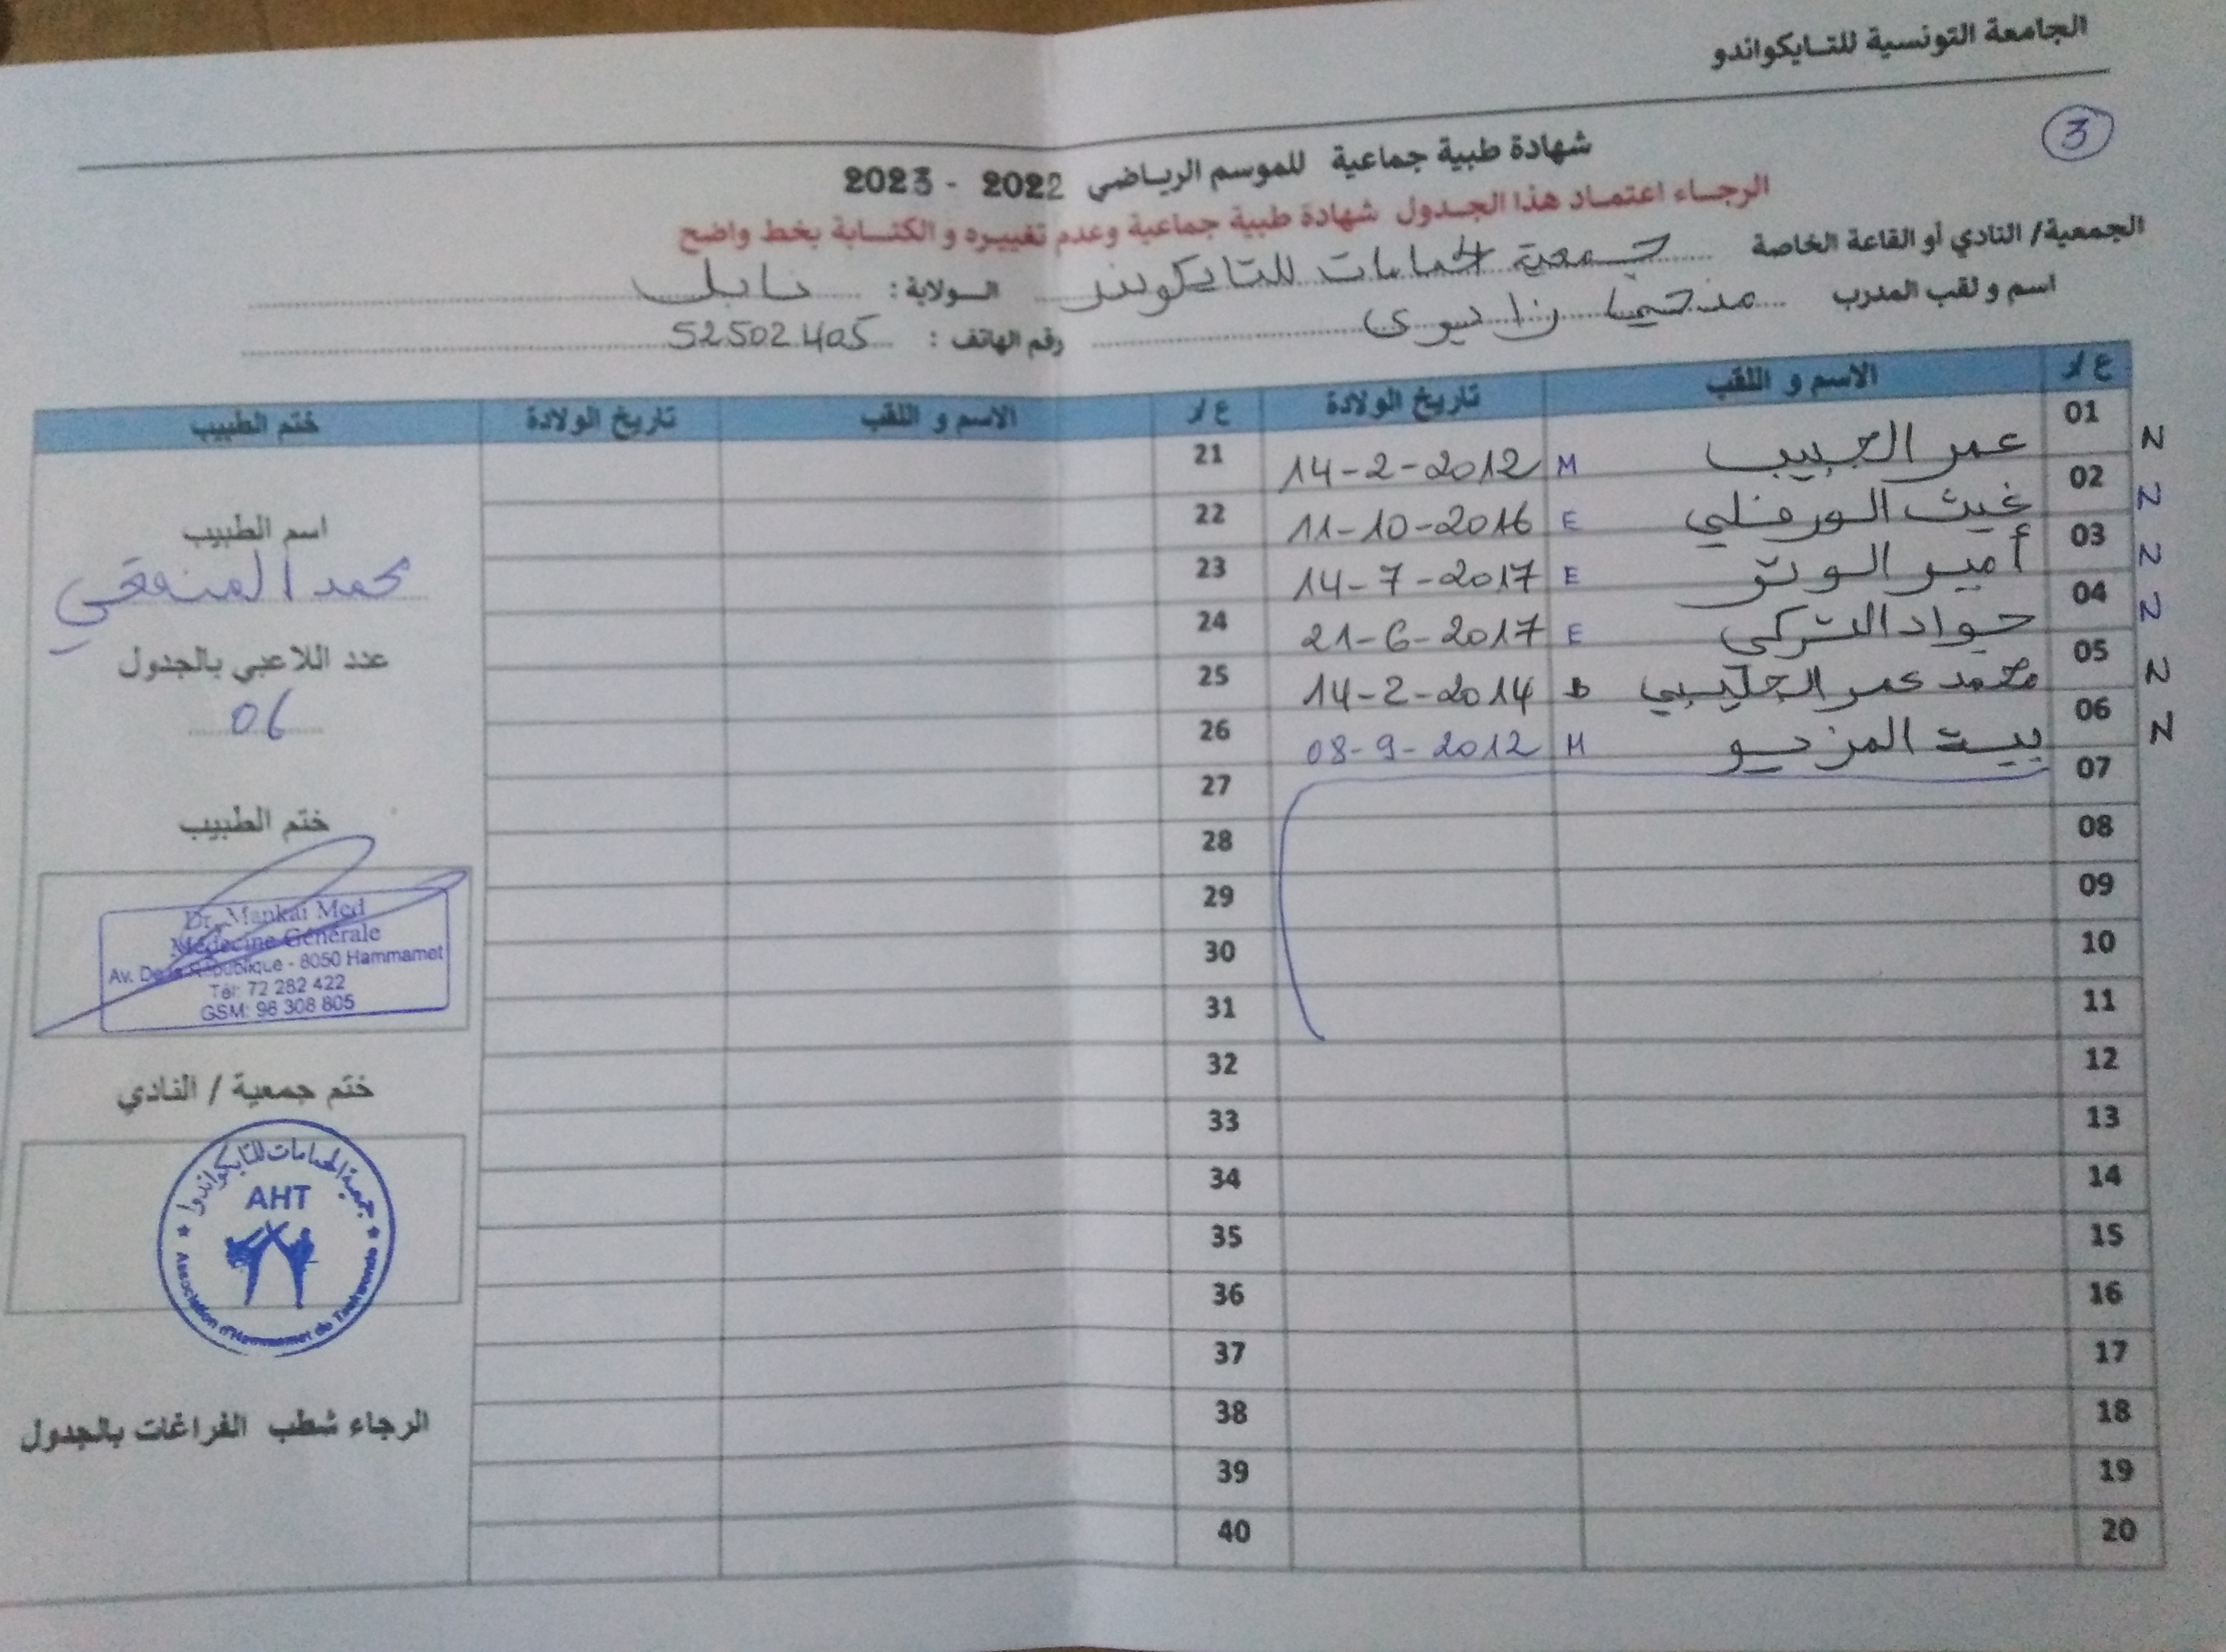 الجامعة التونسية للتايكواندو
3
شهادة طبية جماعية للموسم الرياضي 2022 - 2023
الرجاء اعتماد هذا الجدول شهادة طبية جماعية وعدم تغييره و الكتابة بخط واضح
الجمعية/ النادي أو القاعة الخاصة جمعية الحمامات للتايكوندو الولاية: نابل
اسم و لقب المدرب رقم الهاتف: 52502405
ع/د الاسم و اللقب تاريخ الولادة ع/د الاسم و اللقب تاريخ الولادة ختم الطبيب
01 عمر الحبيب M 14-2-2012 21
N
02 غيث الورفلي E 11-10-2016 22
N
03 أمير E 14-7-2017 23
N
04 جواد التركي E 21-6-2017 24
N
05 محمد عمر B 14-2-2014 25
N
06 M 08-9-2012 26
N
07 27
08 28
09 29
10 30
11 31
12 32
13 33
14 34
15 35
16 36
17 37
18 38
19 39
20 40
اسم الطبيب
محمد
عدد اللاعبي بالجدول
06
ختم الطبيب
Dr. Mankai Med
Médecine Générale
Av. De la République - 8050 Hammamet
Tél: 72 282 422
GSM: 98 308 805
ختم جمعية / النادي
جمعية الحمامات للتايكواندوا
AHT
Association d'Hammamet de Taekwondo
الرجاء شطب الفراغات بالجدول